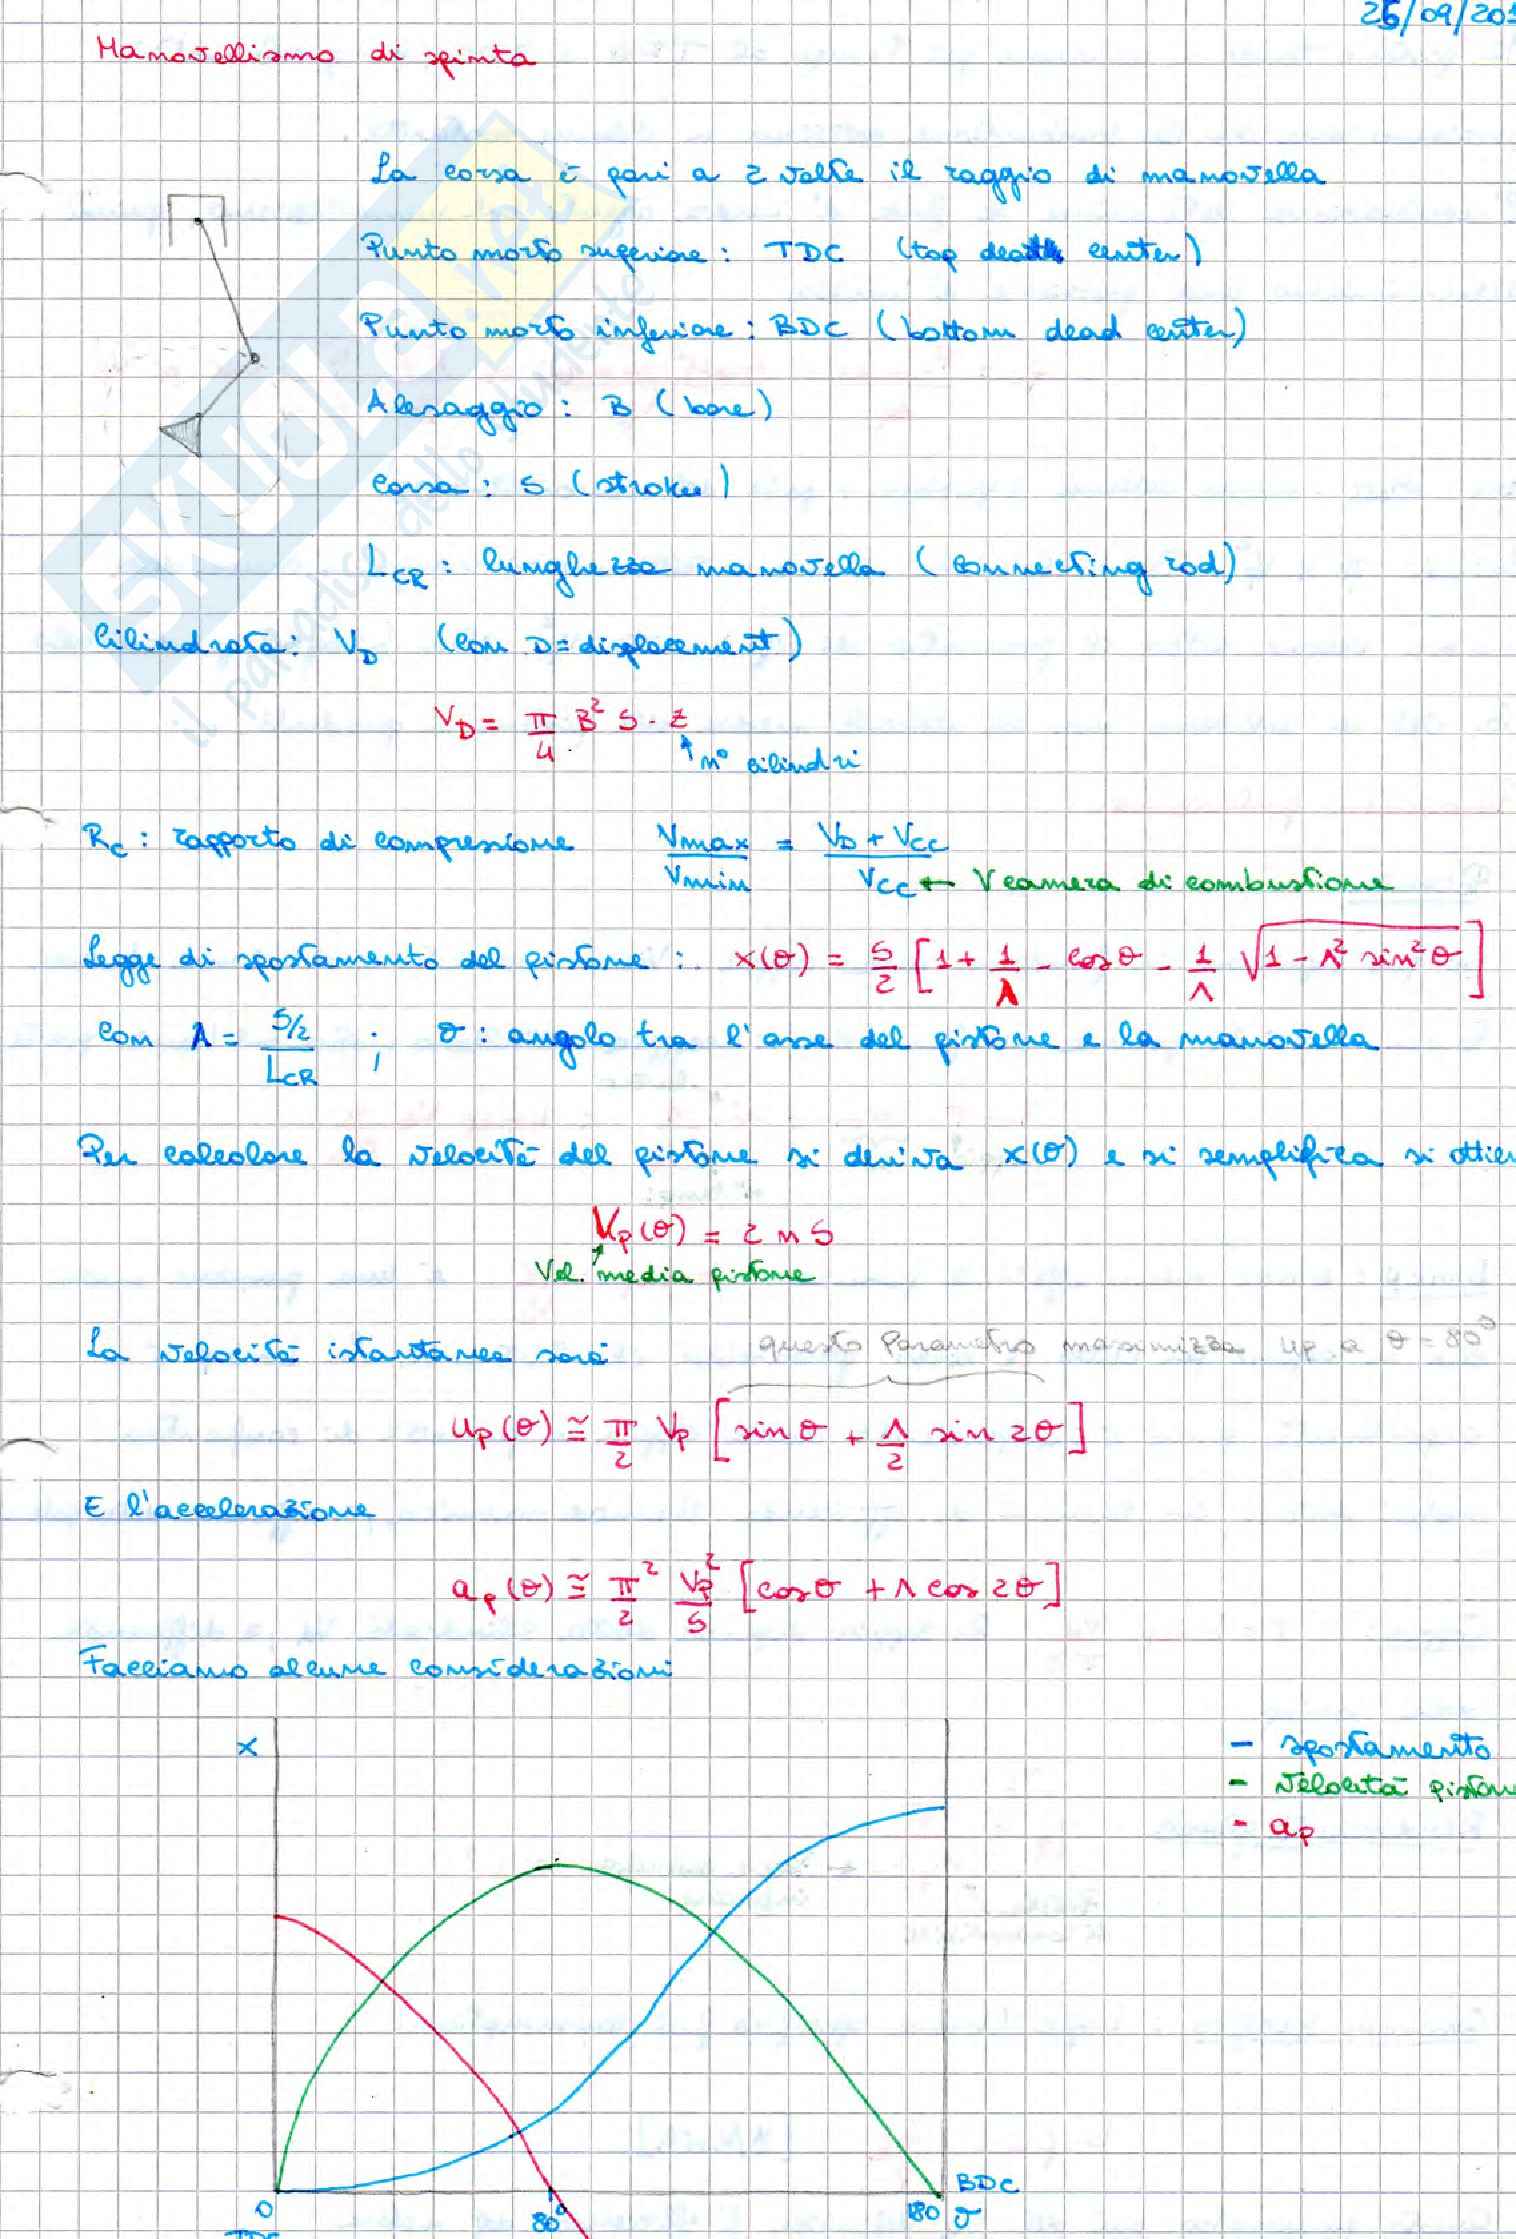 26/09/201
Manovellismo di spinta
La corsa è pari a 2 volte il raggio di manovella
Punto morto superiore : TDC (top dead center)
Punto morto inferiore : BDC (bottom dead center)
Alesaggio : B (bore)
Corsa : S (stroke)
L_CR : lunghezza manovella (connecting rod)
Cilindrata: V_D (con D = displacement)
V_D = π/4 B² S · z
↑ n° cilindri
R_c : rapporto di compressione Vmax/Vmin = (V_D + V_CC)/V_CC ← V camera di combustione
Legge di spostamento del pistone : x(θ) = S/2 [1 + 1/λ - cosθ - 1/Λ √(1 - Λ² sin²θ)]
con Λ = (S/2)/L_CR ; θ : angolo tra l'asse del pistone e la manovella
Per calcolare la velocità del pistone si deriva x(θ) e si semplifica si ottien
V_p(θ) = 2 n S
Vel. media pistone
La velocità istantanea sarà
questo parametro massimizza up a θ = 80°
u_p(θ) ≅ π/2 V_p [sinθ + Λ/2 sin 2θ]
E l'accelerazione
a_p(θ) ≅ π²/2 V_p²/S [cosθ + Λ cos 2θ]
Facciamo alcune considerazioni
x
- spostamento
- velocità piston
- a_p
BDC
0 80° 180 θ
TDC
SKUOLA.net
il paradiso dello studente